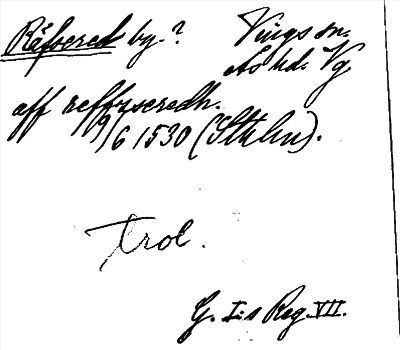 Räfsered by.? Vings sn.
Ås hd. Vg
aff reffzseredh.
19/6 1530 (Sthlm).
Trol.
G. I:s Reg. VII.